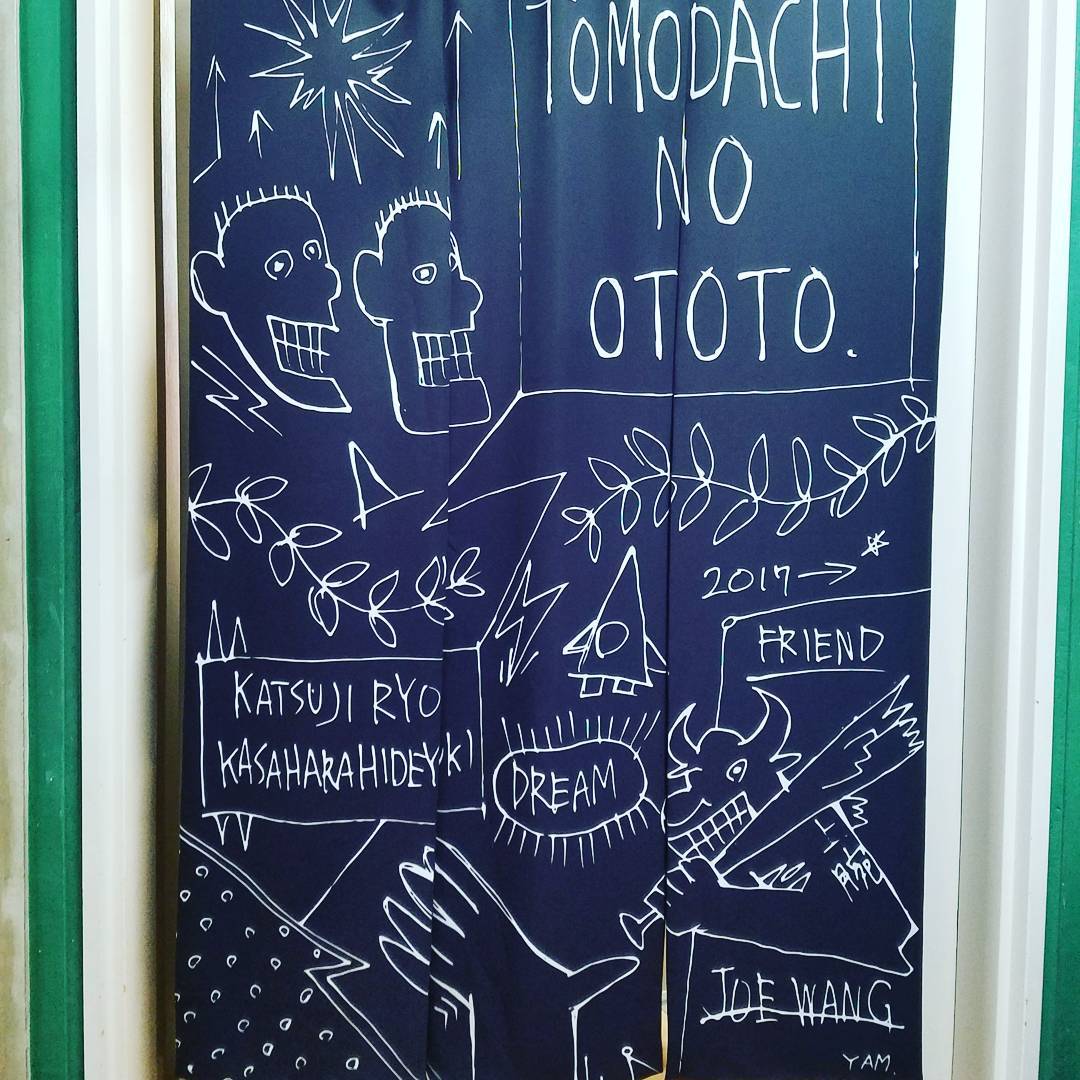 TOMODACHI
NO
OTOTO.
2017
FRIEND
KATSUJI RYO
KASAHARAHIDEYUKI
DREAM
JOE WANG
YAM.